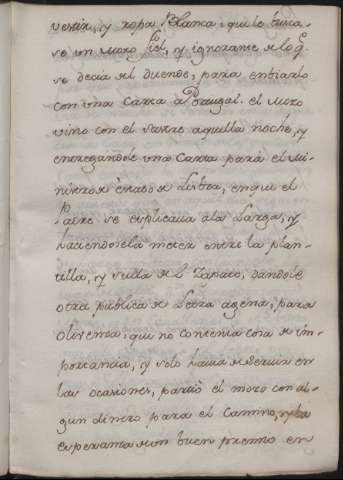 vestir, y ropa Blanca; que le busca-
se un Moro fiel, y ignorante de lo q.
se decia del duende, para enbiarlo
con una Carta a Portugal. el Moro
vino con el sastre aquella noche, y
entregandole una Carta para el Mi-
nistro de estado de Lisboa, enque el
Padre se esplicava ala Larga, y
haciendosela meter entre la plan-
tilla, y suela del Zapato, dandole
otra publica de Letra agena, para
olivenza; que no contenia cosa de im-
portancia, y solo havia de servir en
las ocasiones, partiò el moro con al-
gun dinero para el Camino, y la
esperanza de un buen premio en